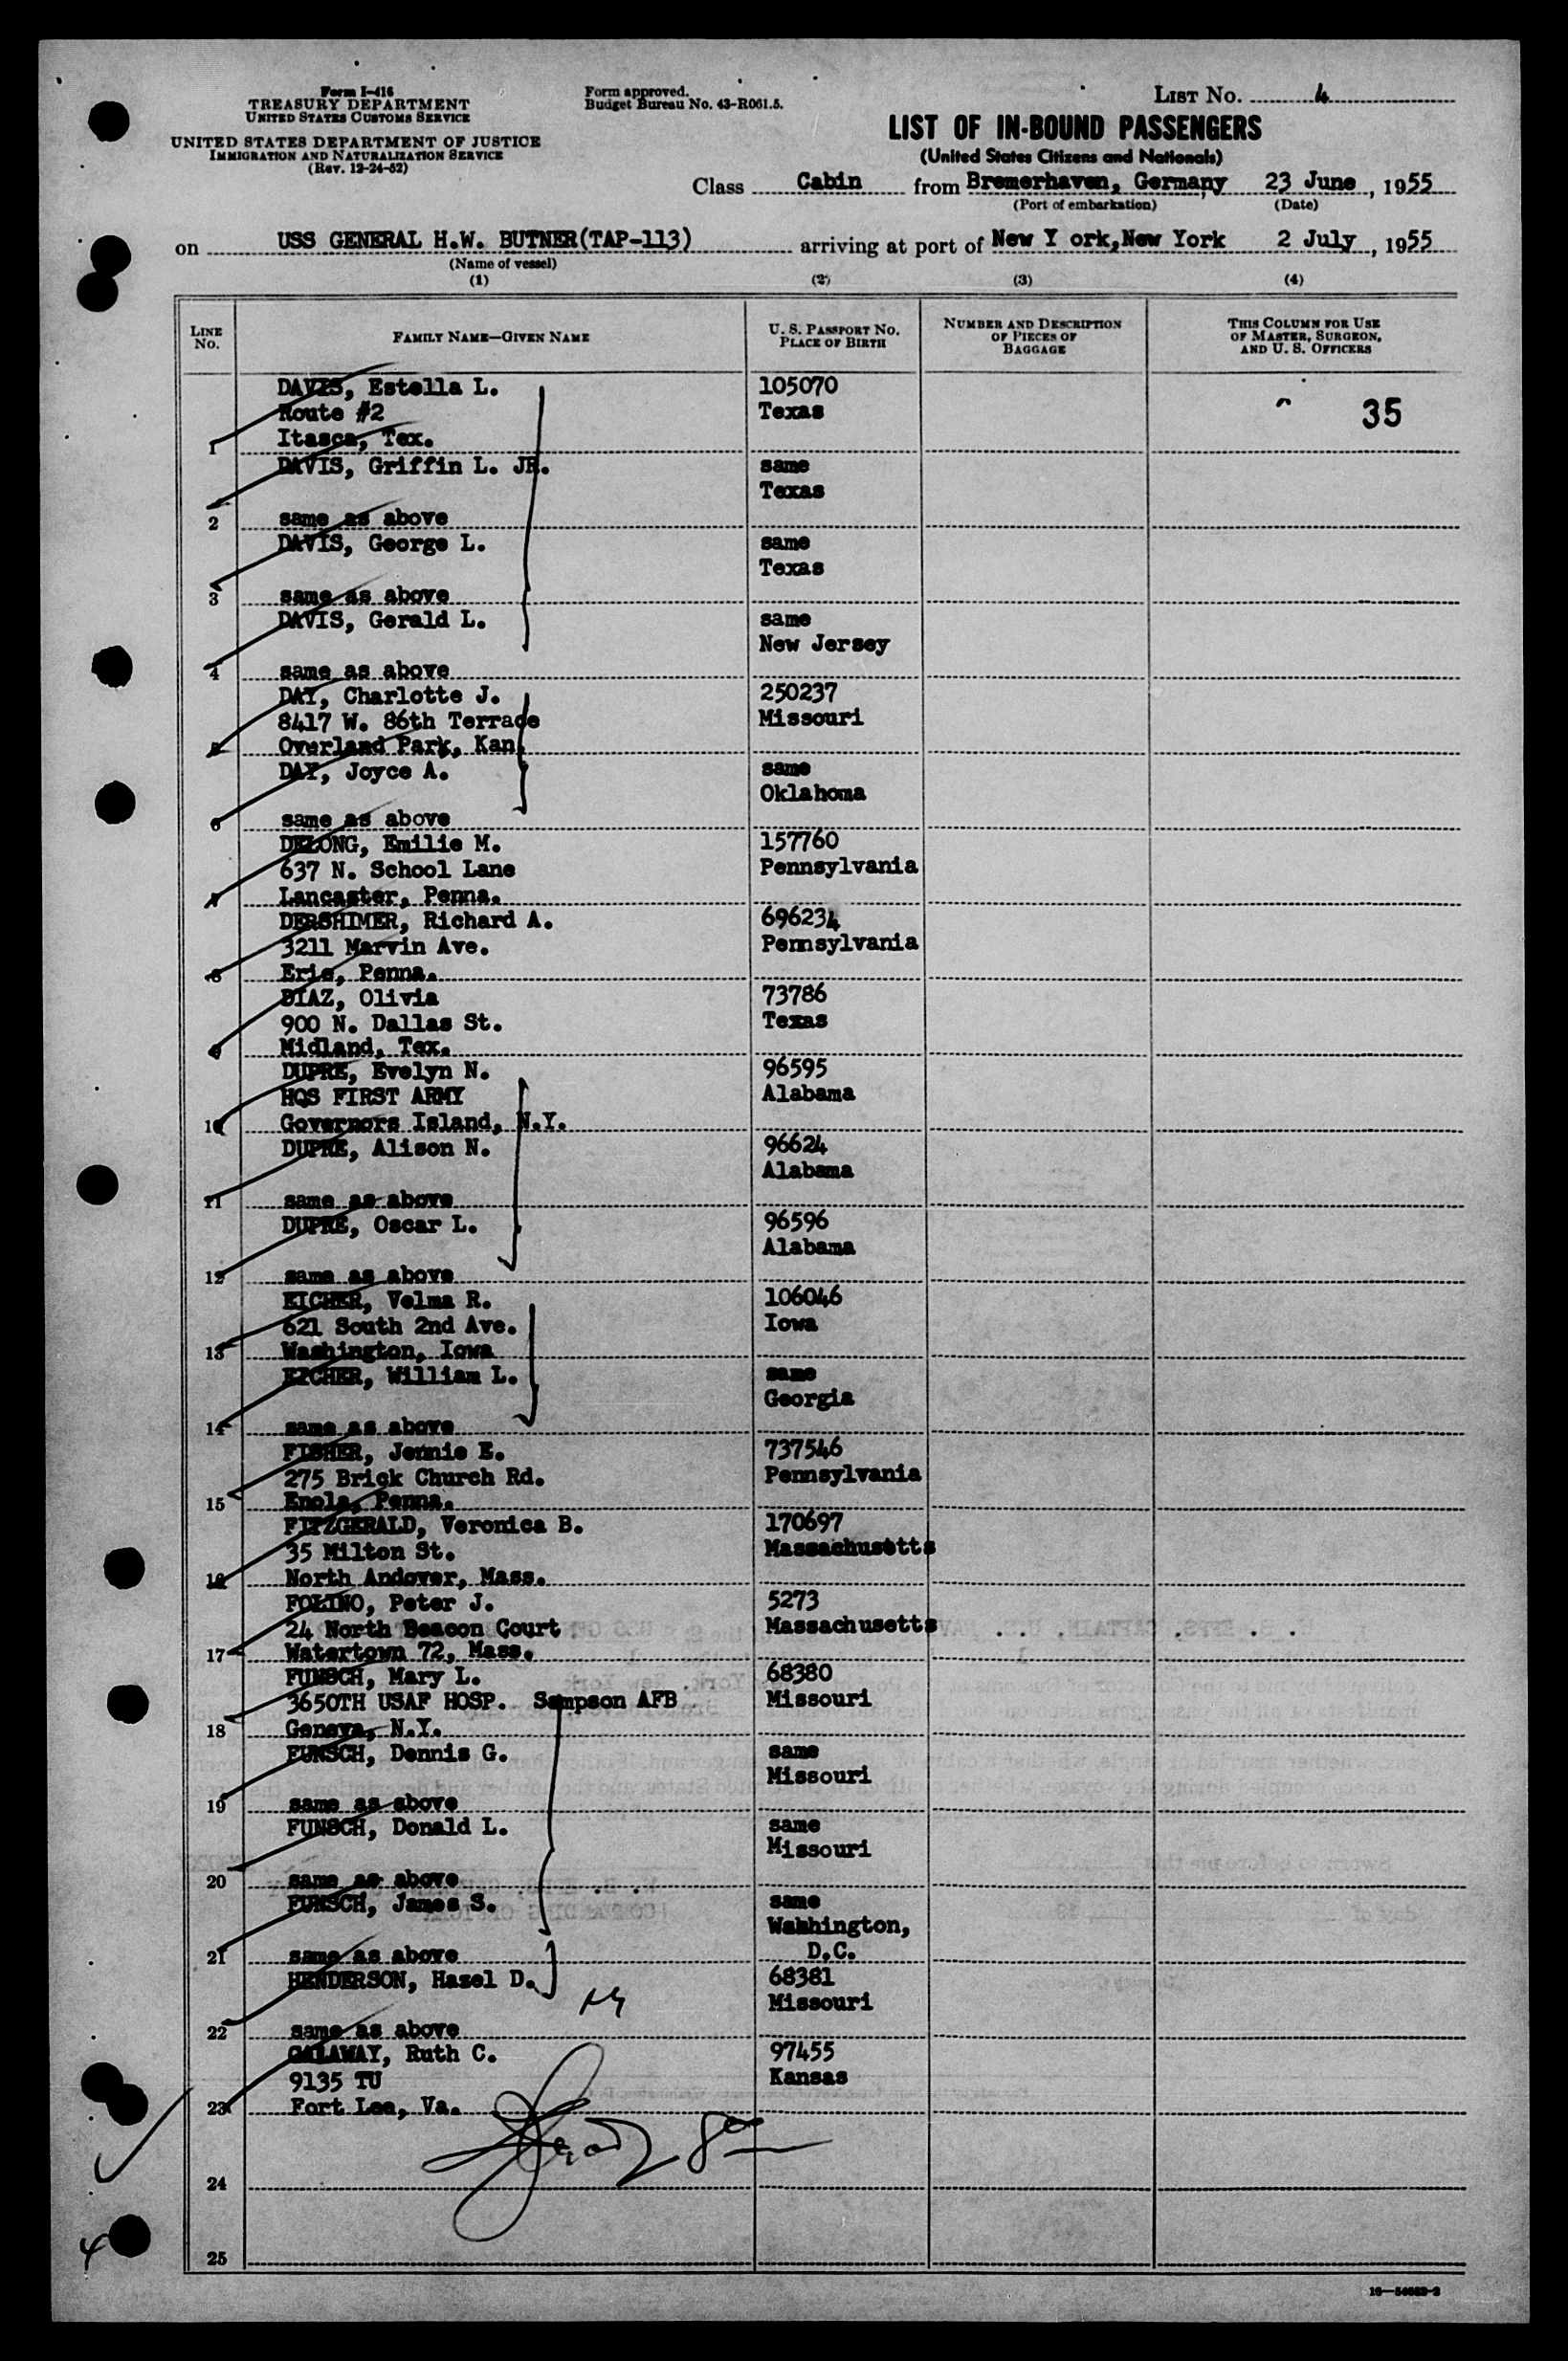 Form I-416
TREASURY DEPARTMENT
UNITED STATES CUSTOMS SERVICE
UNITED STATES DEPARTMENT OF JUSTICE
IMMIGRATION AND NATURALIZATION SERVICE
(Rev. 12-24-52)
Form approved.
Budget Bureau No. 43-R061.5.
LIST No. 4
LIST OF IN-BOUND PASSENGERS
(United States Citizens and Nationals)
Class Cabin from Bremerhaven, Germany 23 June, 1955
(Port of embarkation) (Date)
on USS GENERAL H.W. BUTNER(TAP-113) arriving at port of New Y ork,New York 2 July, 1955
(Name of vessel)
(1) (2) (3) (4)
LINE No. FAMILY NAME—GIVEN NAME U. S. PASSPORT No. PLACE OF BIRTH NUMBER AND DESCRIPTION OF PIECES OF BAGGAGE THIS COLUMN FOR USE OF MASTER, SURGEON, AND U. S. OFFICERS
DAVIS, Estella L. 105070
Route #2 Texas 35
1 Itasca, Tex.
DAVIS, Griffin L. JR. same
Texas
2 same as above
DAVIS, George L. same
Texas
3 same as above
DAVIS, Gerald L. same
New Jersey
4 same as above
DAY, Charlotte J. 250237
8417 W. 86th Terrace Missouri
5 Overland Park, Kan.
DAY, Joyce A. same
Oklahoma
6 same as above
DELONG, Emilie M. 157760
637 N. School Lane Pennsylvania
7 Lancaster, Penna.
DERSHIMER, Richard A. 696234
3211 Marvin Ave. Pennsylvania
8 Erie, Penna.
DIAZ, Olivia 73786
900 N. Dallas St. Texas
9 Midland, Tex.
DUPRE, Evelyn N. 96595
HQS FIRST ARMY Alabama
10 Governors Island, N.Y.
DUPRE, Alison N. 96624
Alabama
11 same as above
DUPRE, Oscar L. 96596
Alabama
12 same as above
EICHER, Velma R. 106046
621 South 2nd Ave. Iowa
13 Washington, Iowa
EICHER, William L. same
Georgia
14 same as above
FISHER, Jennie E. 737546
275 Brick Church Rd. Pennsylvania
15 Enola, Penna.
FITZGERALD, Veronica B. 170697
35 Milton St. Massachusetts
16 North Andover, Mass.
FOLINO, Peter J. 5273
24 North Beacon Court Massachusetts
17 Watertown 72, Mass.
FUNSCH, Mary L. 68380
3650TH USAF HOSP. Sampson AFB Missouri
18 Geneva, N.Y.
FUNSCH, Dennis G. same
Missouri
19 same as above
FUNSCH, Donald L. same
Missouri
20 same as above
FUNSCH, James S. same
Wahhington,
21 same as above D.C.
HENDERSON, Hazel D. 68381
Missouri
22 same as above
GALAWAY, Ruth C. 97455
9135 TU Kansas
23 Fort Lee, Va.
24
25
4